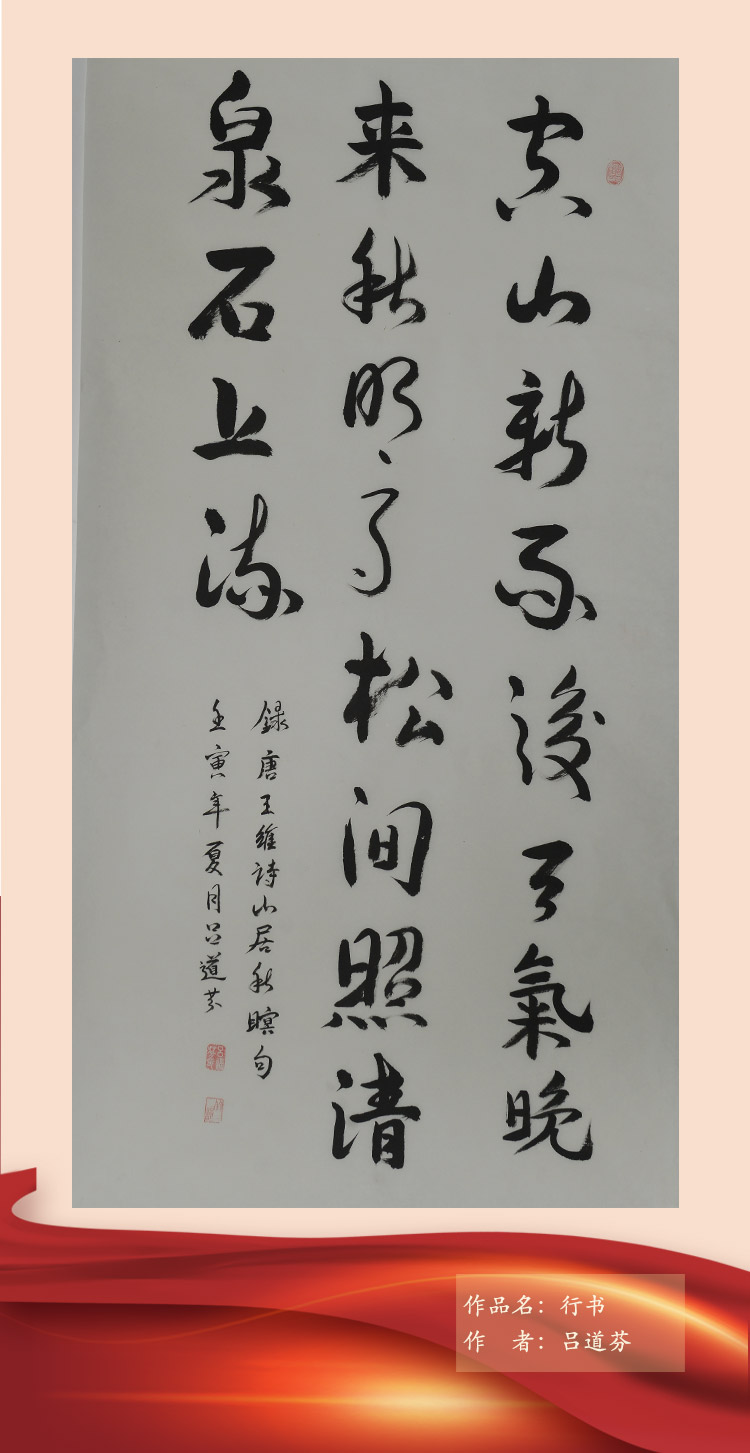 空山新雨後天氣晚
来秋明月松间照清
泉石上流
録唐王維詩山居秋瞑句
壬寅年夏月吕道芬
作品名：行书
作　者：吕道芬